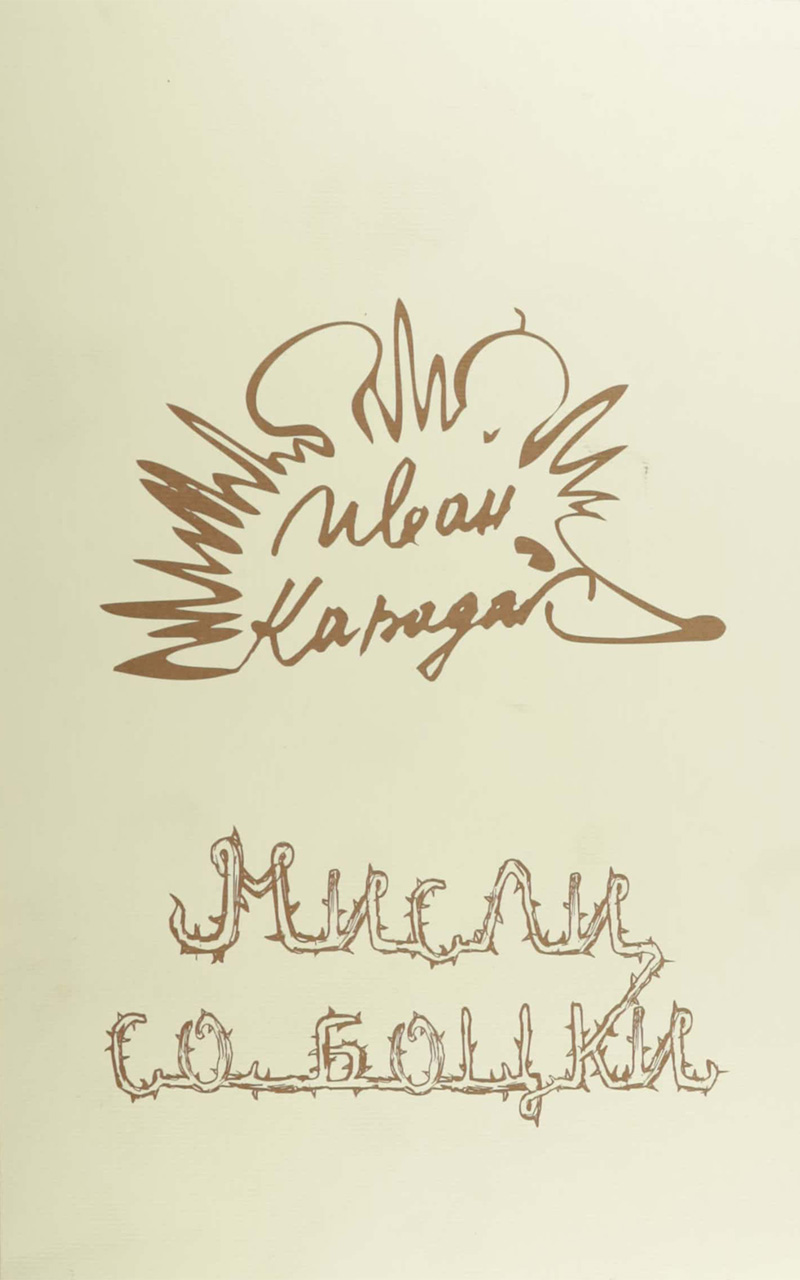 Иван
Карадак
Мисли
со боцки